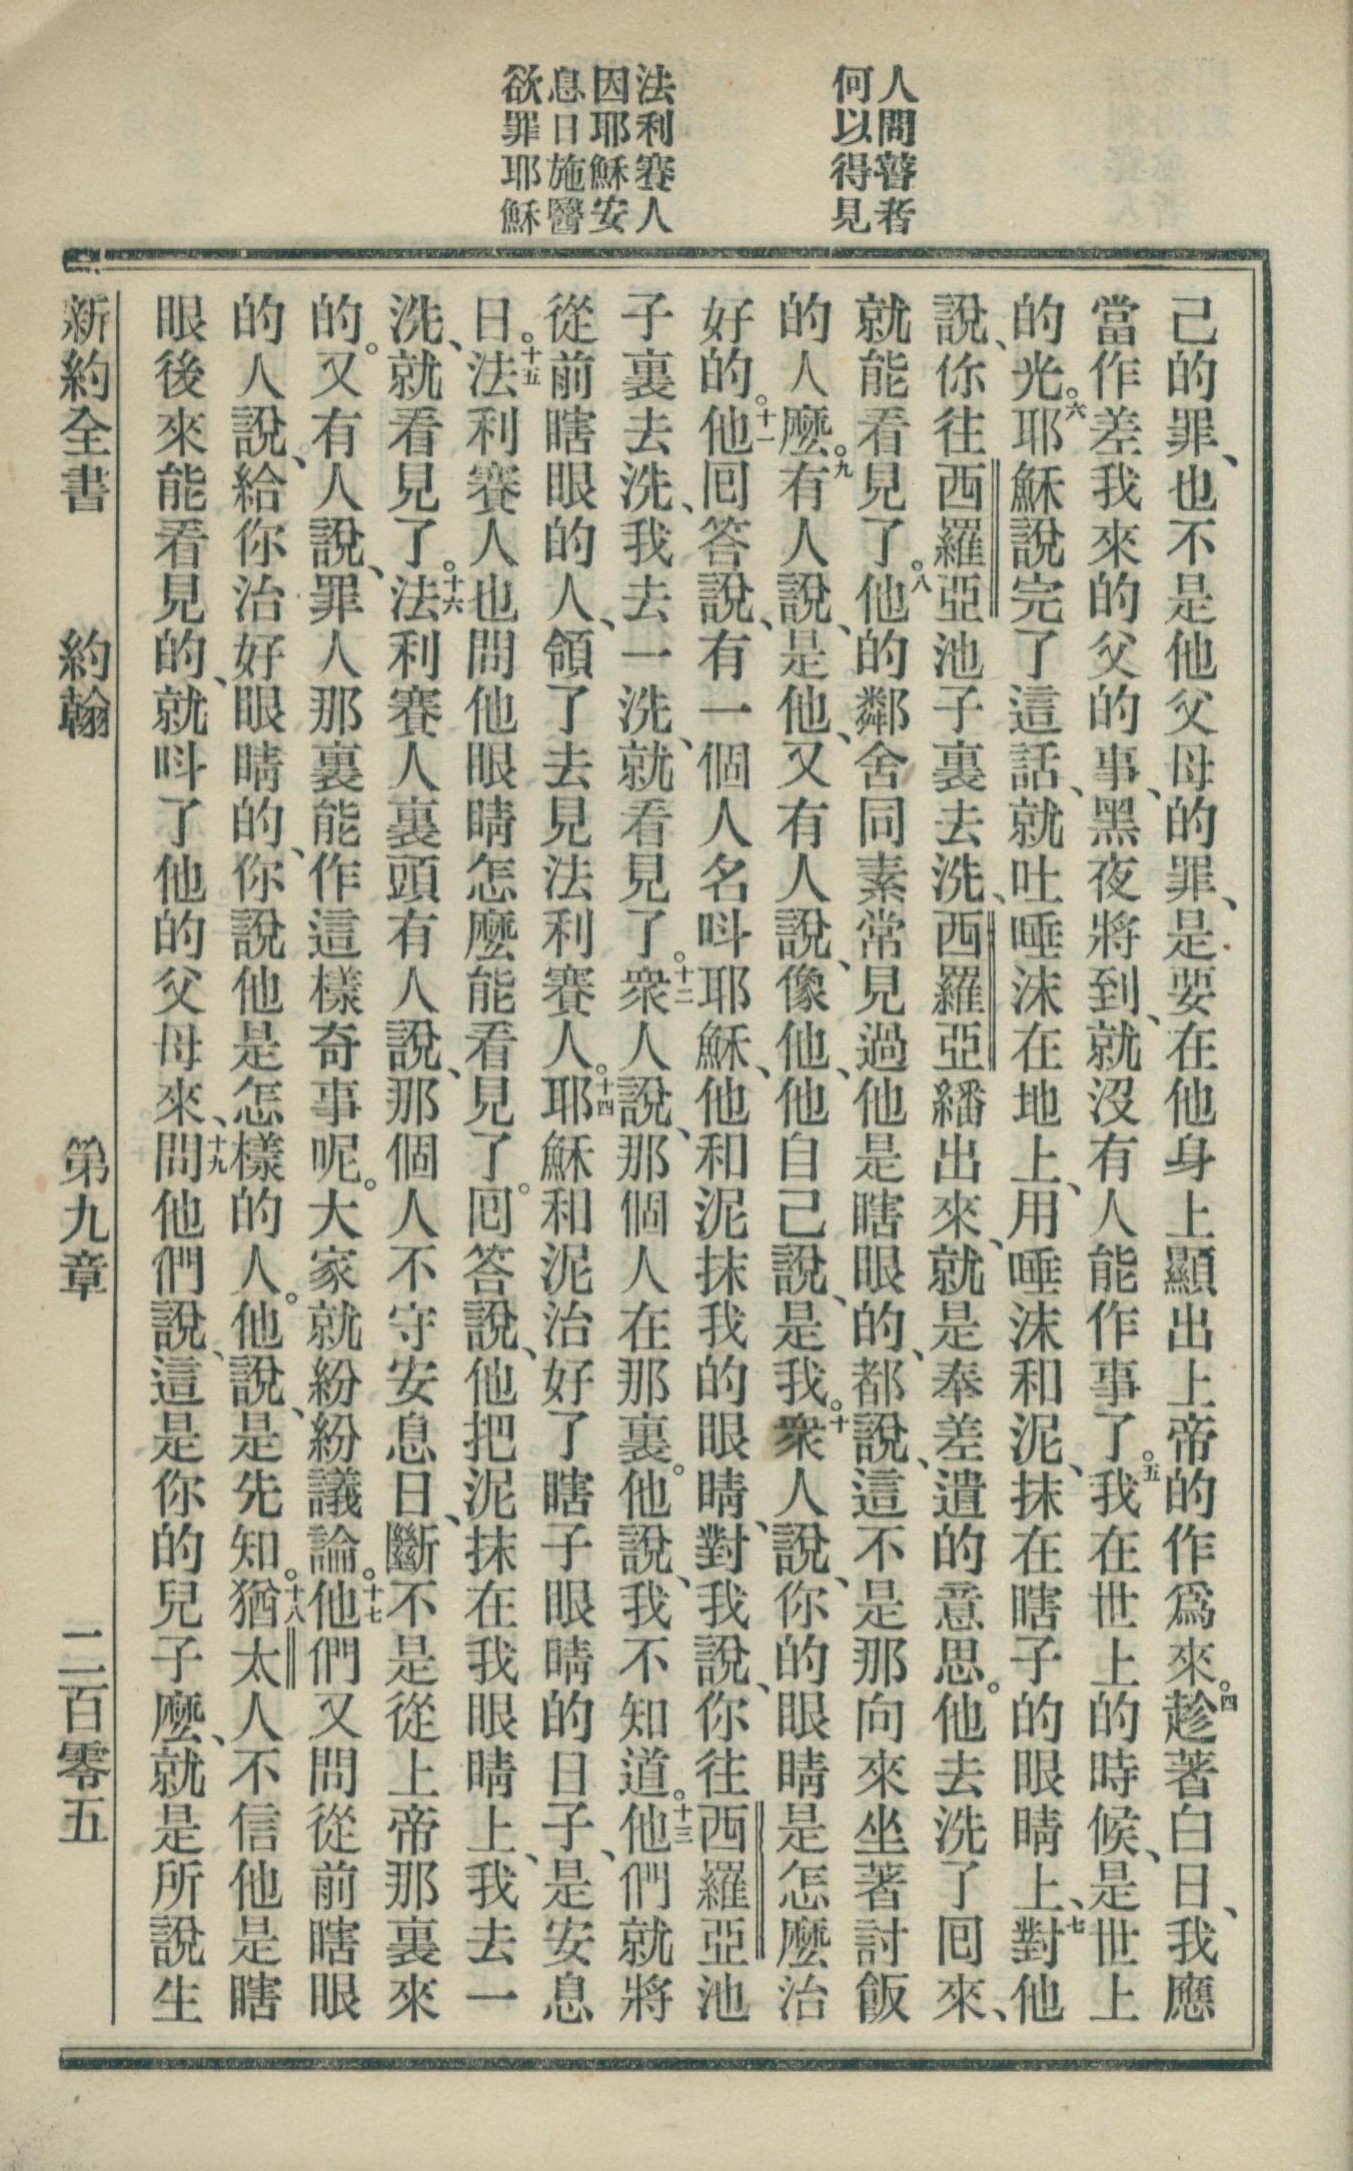 人問瞽者
何以得見
法利賽人
因耶穌安
息日施醫
欲罪耶穌
己的罪、也不是他父母的罪、是要在他身上顯出上帝的作爲來。四趁著白日、我應
當作差我來的父的事、黑夜將到、就沒有人能作事了。五我在世上的時候、是世上
的光。六耶穌說完了這話、就吐唾沫在地上、用唾沫和泥、抹在瞎子的眼睛上、七對他
說、你往西羅亞池子裏去洗、西羅亞繙出來、就是奉差遣的意思。他去洗了囘來、
就能看見了。八他的鄰舍同素常見過他是瞎眼的、都說、這不是那向來坐著討飯
的人麽。九有人說、是他、又有人說、像他、他自己說、是我。十衆人說、你的眼睛是怎麽治
好的。十一他囘答說、有一個人名呌耶穌、他和泥抹我的眼睛、對我說、你往西羅亞池
子裏去洗、我去一洗、就看見了。十二衆人說、那個人在那裏。他說、我不知道。十三他們就將
從前瞎眼的人、領了去見法利賽人。十四耶穌和泥治好了瞎子眼睛的日子、是安息
日。十五法利賽人也問他眼睛怎麽能看見了。囘答說、他把泥抹在我眼睛上、我去一
洗、就看見了。十六法利賽人裏頭有人說、那個人不守安息日、斷不是從上帝那裏來
的。又有人說、罪人那裏能作這樣奇事呢。大家就紛紛議論。十七他們又問從前瞎眼
的人說、給你治好眼睛的、你說他是怎樣的人。他說、是先知。十八猶太人不信他是瞎
眼後來能看見的、就呌了他的父母來、十九問他們說、這是你的兒子麽、就是所說生
新約全書 約翰 第九章 二百零五